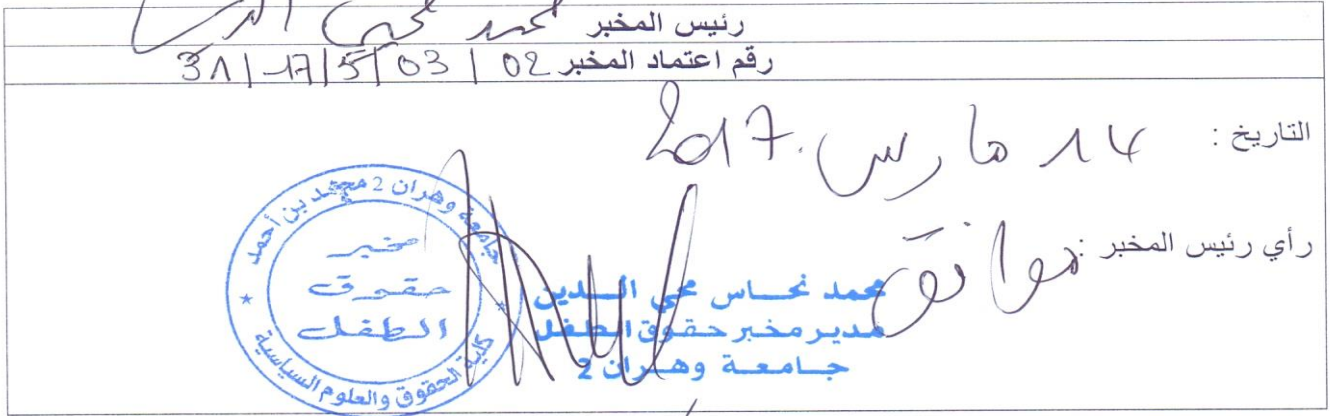 رئيس المخبر محمد محي الدين
رقم اعتماد المخبر 02 | 03 | 5 | 17 | 31
التاريخ : 14 مارس 2017
رأي رئيس المخبر : موافق
جامعة وهران 2 محمد بن أحمد
مخبر
حقوق
الطفل
كلية الحقوق والعلوم السياسية
محمد نحاس محي الدين
مدير مخبر حقوق الطفل
جامعة وهران 2